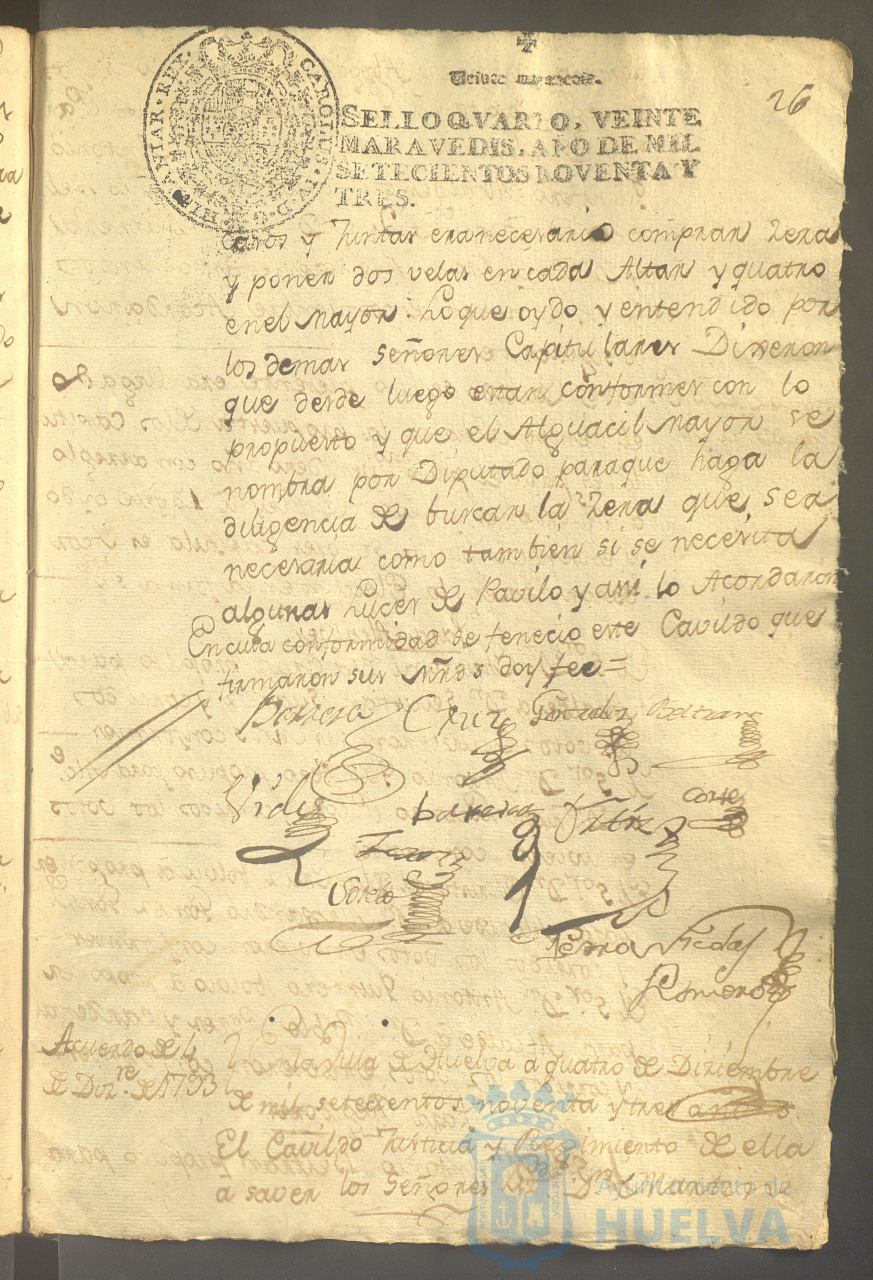 Veinte maravedis.
26
SELLO QVARTO, VEINTE
MARAVEDIS, AÑO DE MIL
SETECIENTOS NOVENTA Y
TRES.
CAROLUS IV D G HISPANIAR REX
y Juntas era necesario comprar Zera
y poner dos velas en cada Altar y quatro
en el mayor: Lo que oydo y entendido por
los demas Señores Capitulares Dixeron
que desde luego estan conformes con lo
propuesto y que el Alguacil mayor se
nombra por Diputado para que haga la
diligencia de buscar la Zera que sea
necesaria como tambien si se necesita
algunas Luces de Pavilo y assi lo Acordaron
En cuia conformidad se fenecio este Cavildo que
firmaron sus mrds doy fee=
Barrera Cruz Gonzalez Beltran
Vides barera Ortiz Cortes
Sotelo
Pedro Nicolas
Romero
Acuerdo de 4
de Dizre. de 1793
la Villa de Huelva a quatro de Diziembre
de mil setecientos noventa y tres años
El Cavildo Justicia y Regimiento de ella
a saver los Señores Dn. Manuel
Ayuntamiento de
HUELVA